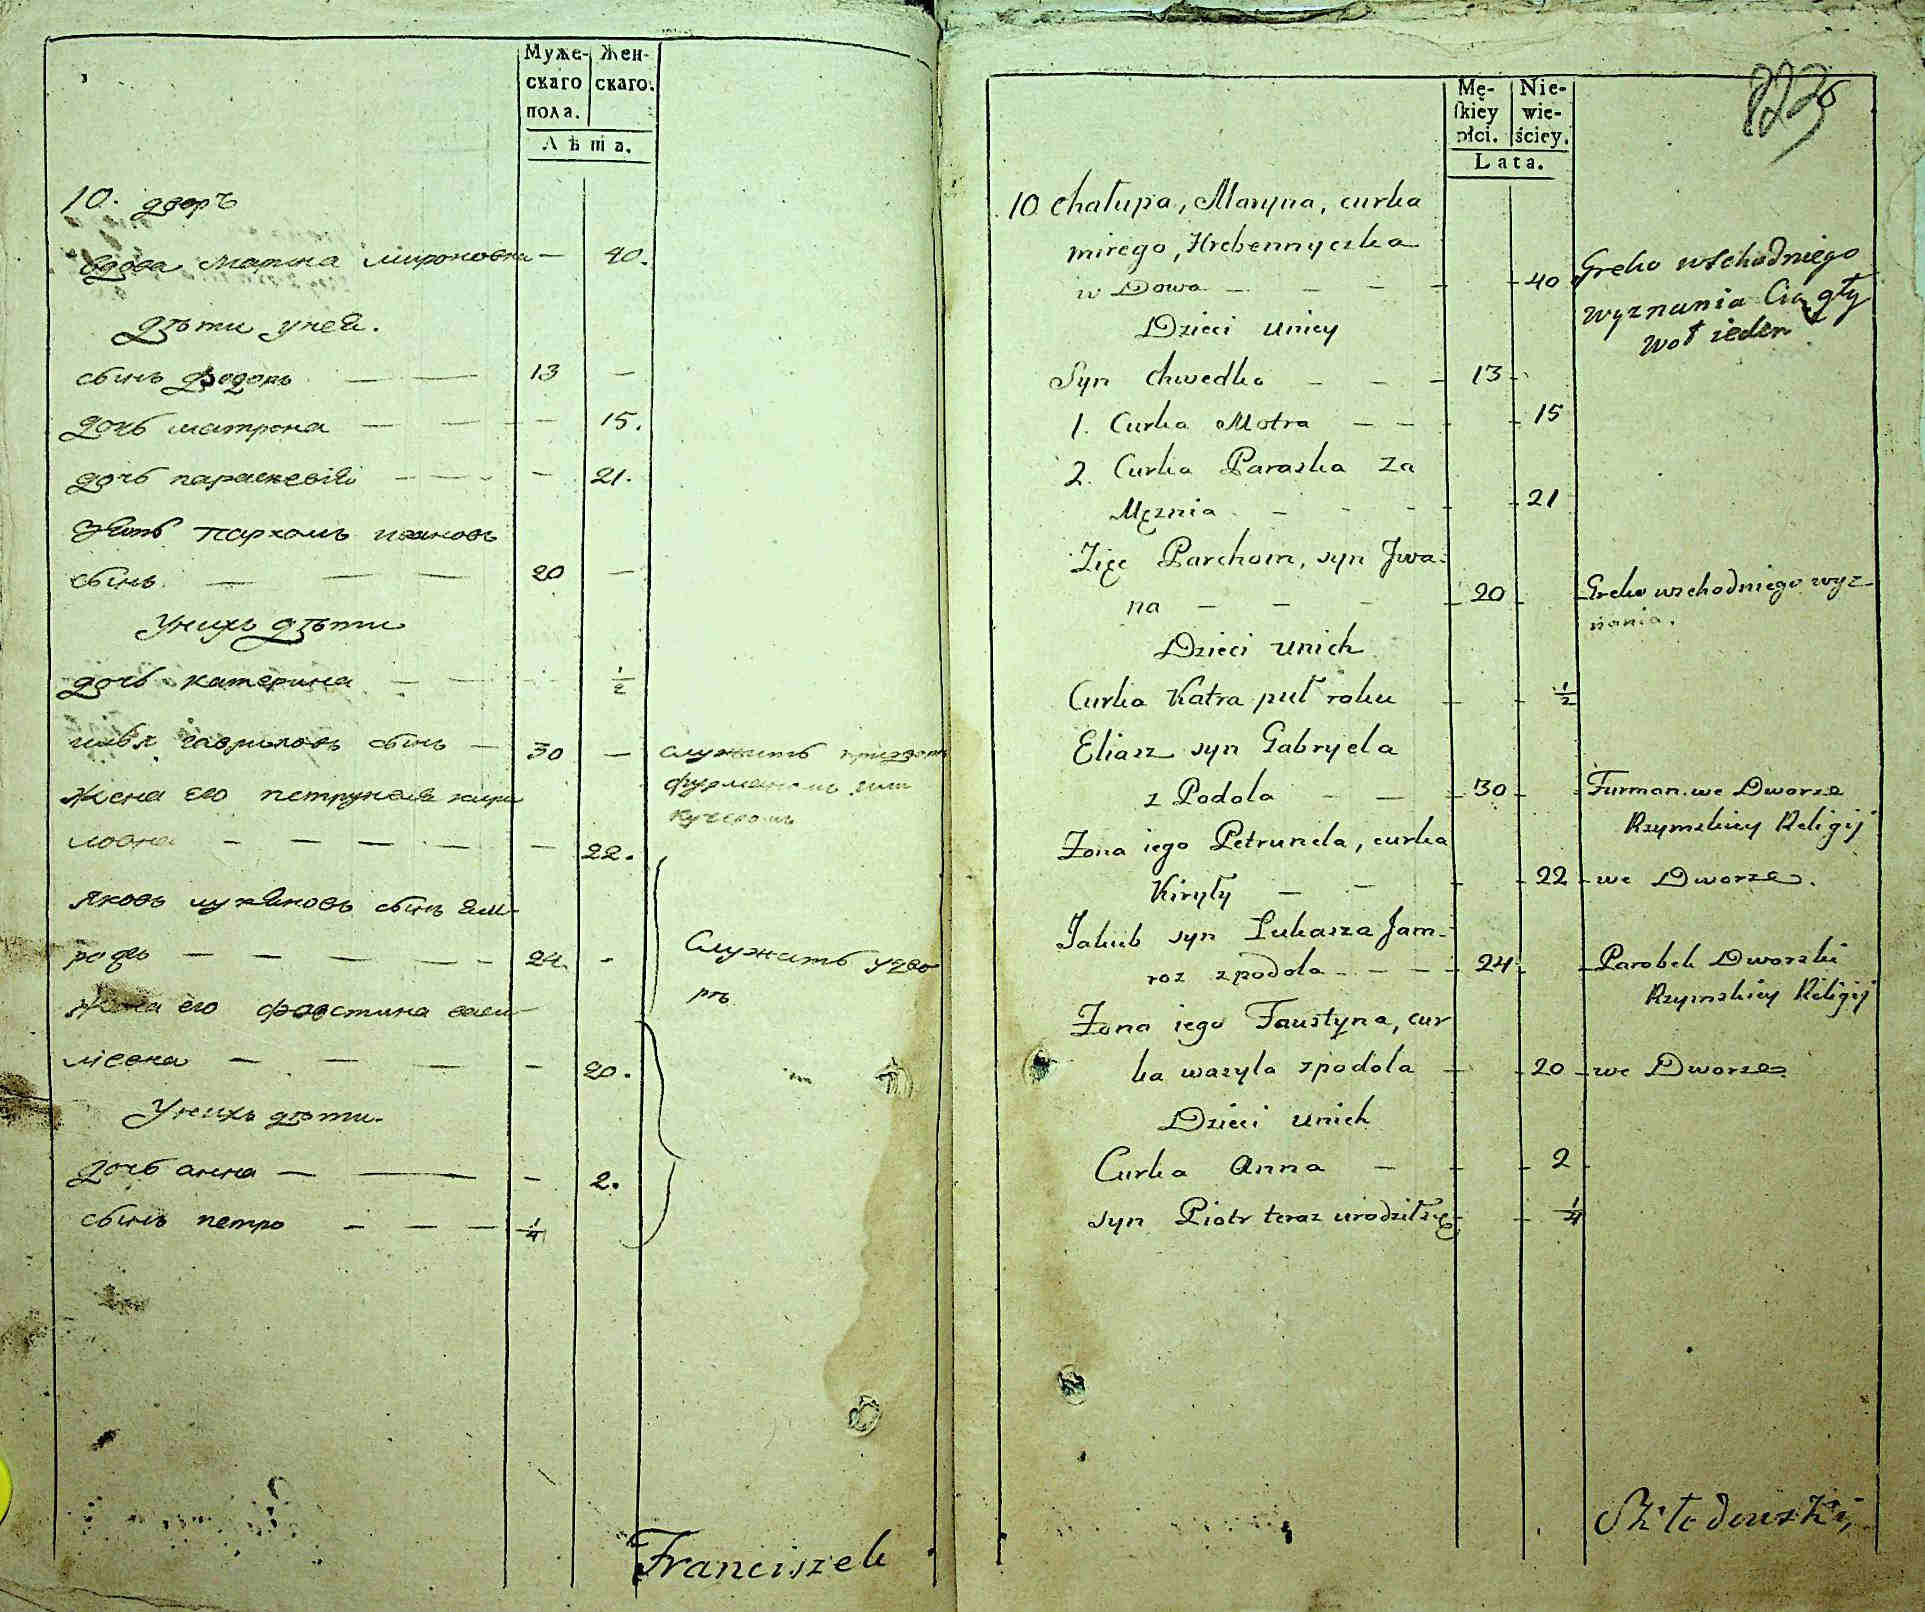 Муже-
скаго
пола.
Жен-
скаго.
Лѣта.
10. дворъ
вдова марина мироновна — 40.
дѣти унея.
сынъ федоръ — — 13 —
дочь матрона — — — — 15.
дочь параскевія — — — — 21.
зять пархомъ ивановъ
сынъ — — — 20 —
унихъ дѣти
дочь катерина — — 1/2
илья гавриловъ сынъ — 30 — служитъ
фурманомъ или
кучеромъ
жена его петрунеля кири
ловна — — — — — — 22.
яковъ лукяновъ сынъ ям-
розъ — — — — — 24. - служитъ удво
рѣ
жена его фаостина васи-
лиевна — — — — 20.
унихъ дѣти.
дочь анна — — — — 2.
сынъ петро — — — 1/4
Franciszek
Mę-
skiey
płci.
Nie-
wie-
ściey.
Lata.
10 chałupa, Maryna, curka
mirego, Hrebennyczka
w Dowa — — — — 40 Greko wschodniego
wyznania Ciągły
woł ieden
Dzieci uniey
Syn Chwedko — — — 13
1. Curka Motra — — — 15
2. Curka Paraska za
Męznia — — — — 21
Zięc Parchom, syn Jwa-
na — — — 20 Greko wschodniego wyz-
nania.
Dzieci unich
Curka Katra puł roku — — 1/2
Eliasz syn Gabryela
z Podola — — 30 Furman we Dworze
Rzymskiey Religij
Zona iego Petrunela, curka
Kiryły — — — 22 we Dworze.
Jakub syn Łukasza Jam-
roz zpodola — — — 24 Parobek Dworski
Rzymskiey Religij
Zona iego Faustyna, cur
ka wasyla zpodola — 20 we Dworze
Dzieci unich
Curka Anna — — 2
syn Piotr teraz urodziłsię — 1/4